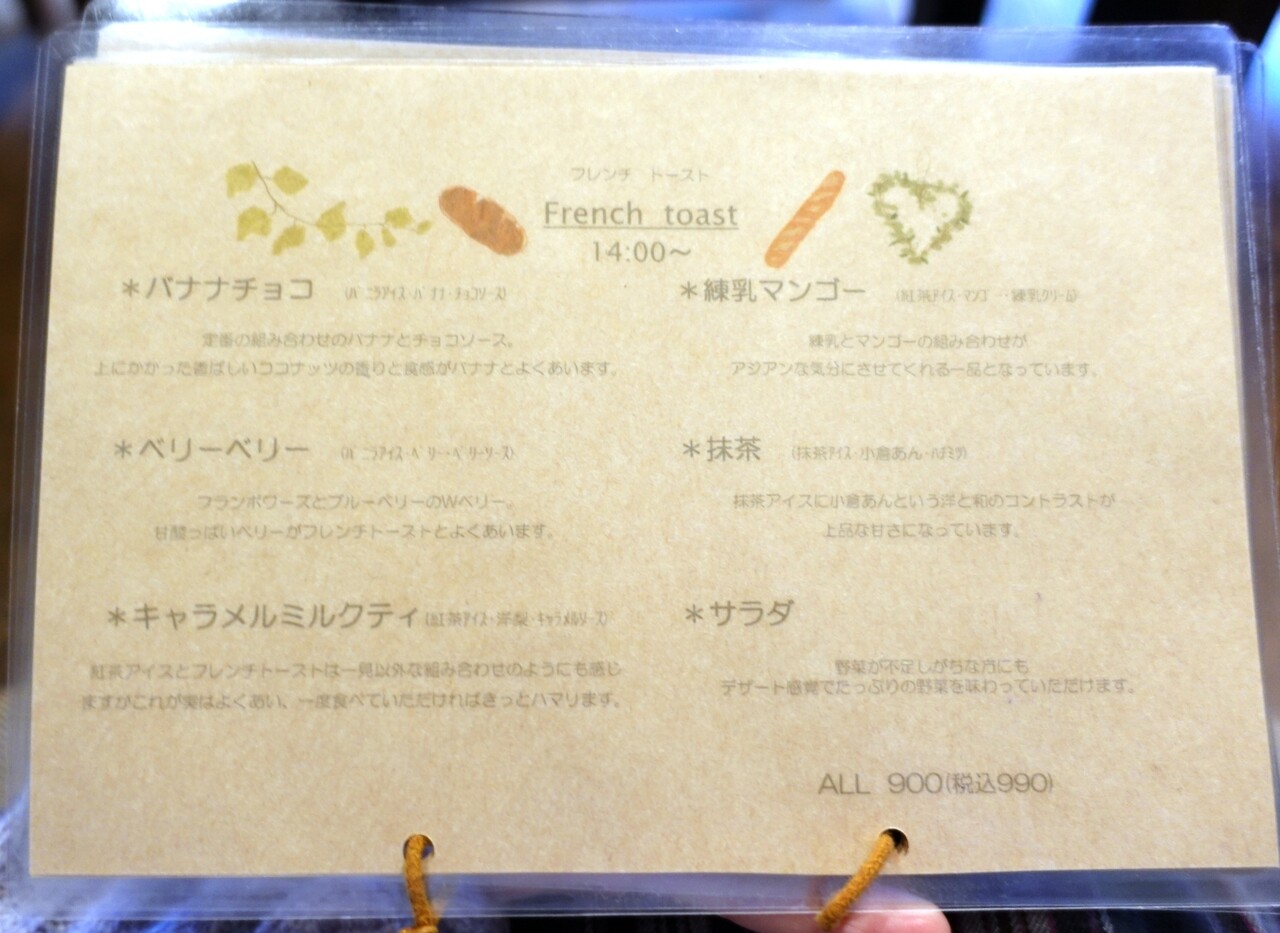 フレンチ トースト
French toast
14:00～
＊バナナチョコ (ﾊﾞﾆﾗｱｲｽ･ﾊﾞﾅﾅ･ﾁｮｺｿｰｽ)
定番の組み合わせのバナナとチョコソース。
上にかかった香ばしいココナッツの香りと食感がバナナとよくあいます。
＊ベリーベリー (ﾊﾞﾆﾗｱｲｽ･ﾍﾞﾘｰ･ﾍﾞﾘｰｿｰｽ)
フランボワーズとブルーベリーのWベリー。
甘酸っぱいベリーがフレンチトーストとよくあいます。
＊キャラメルミルクティ (紅茶ｱｲｽ･洋梨･ｷｬﾗﾒﾙｿｰｽ)
紅茶アイスとフレンチトーストは一見以外な組み合わせのようにも感じ
ますがこれが実はよくあい、一度食べていただければきっとハマリます。
＊練乳マンゴー (紅茶ｱｲｽ･ﾏﾝｺﾞｰ･練乳ｸﾘｰﾑ)
練乳とマンゴーの組み合わせが
アジアンな気分にさせてくれる一品となっています。
＊抹茶 (抹茶ｱｲｽ･小倉あん･ﾊﾁﾐﾂ)
抹茶アイスに小倉あんという洋と和のコントラストが
上品な甘さになっています。
＊サラダ
野菜が不足しがちな方にも
デザート感覚でたっぷりの野菜を味わっていただけます。
ALL 900(税込990)